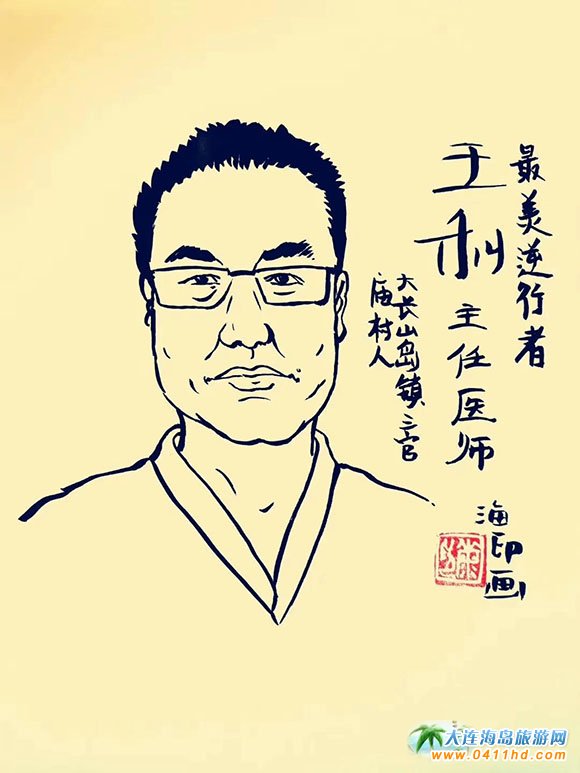 最美逆行者
王利 主任医师
大长山岛镇三官
庙村人
海印画
大连海岛旅游网
www.0411hd.com